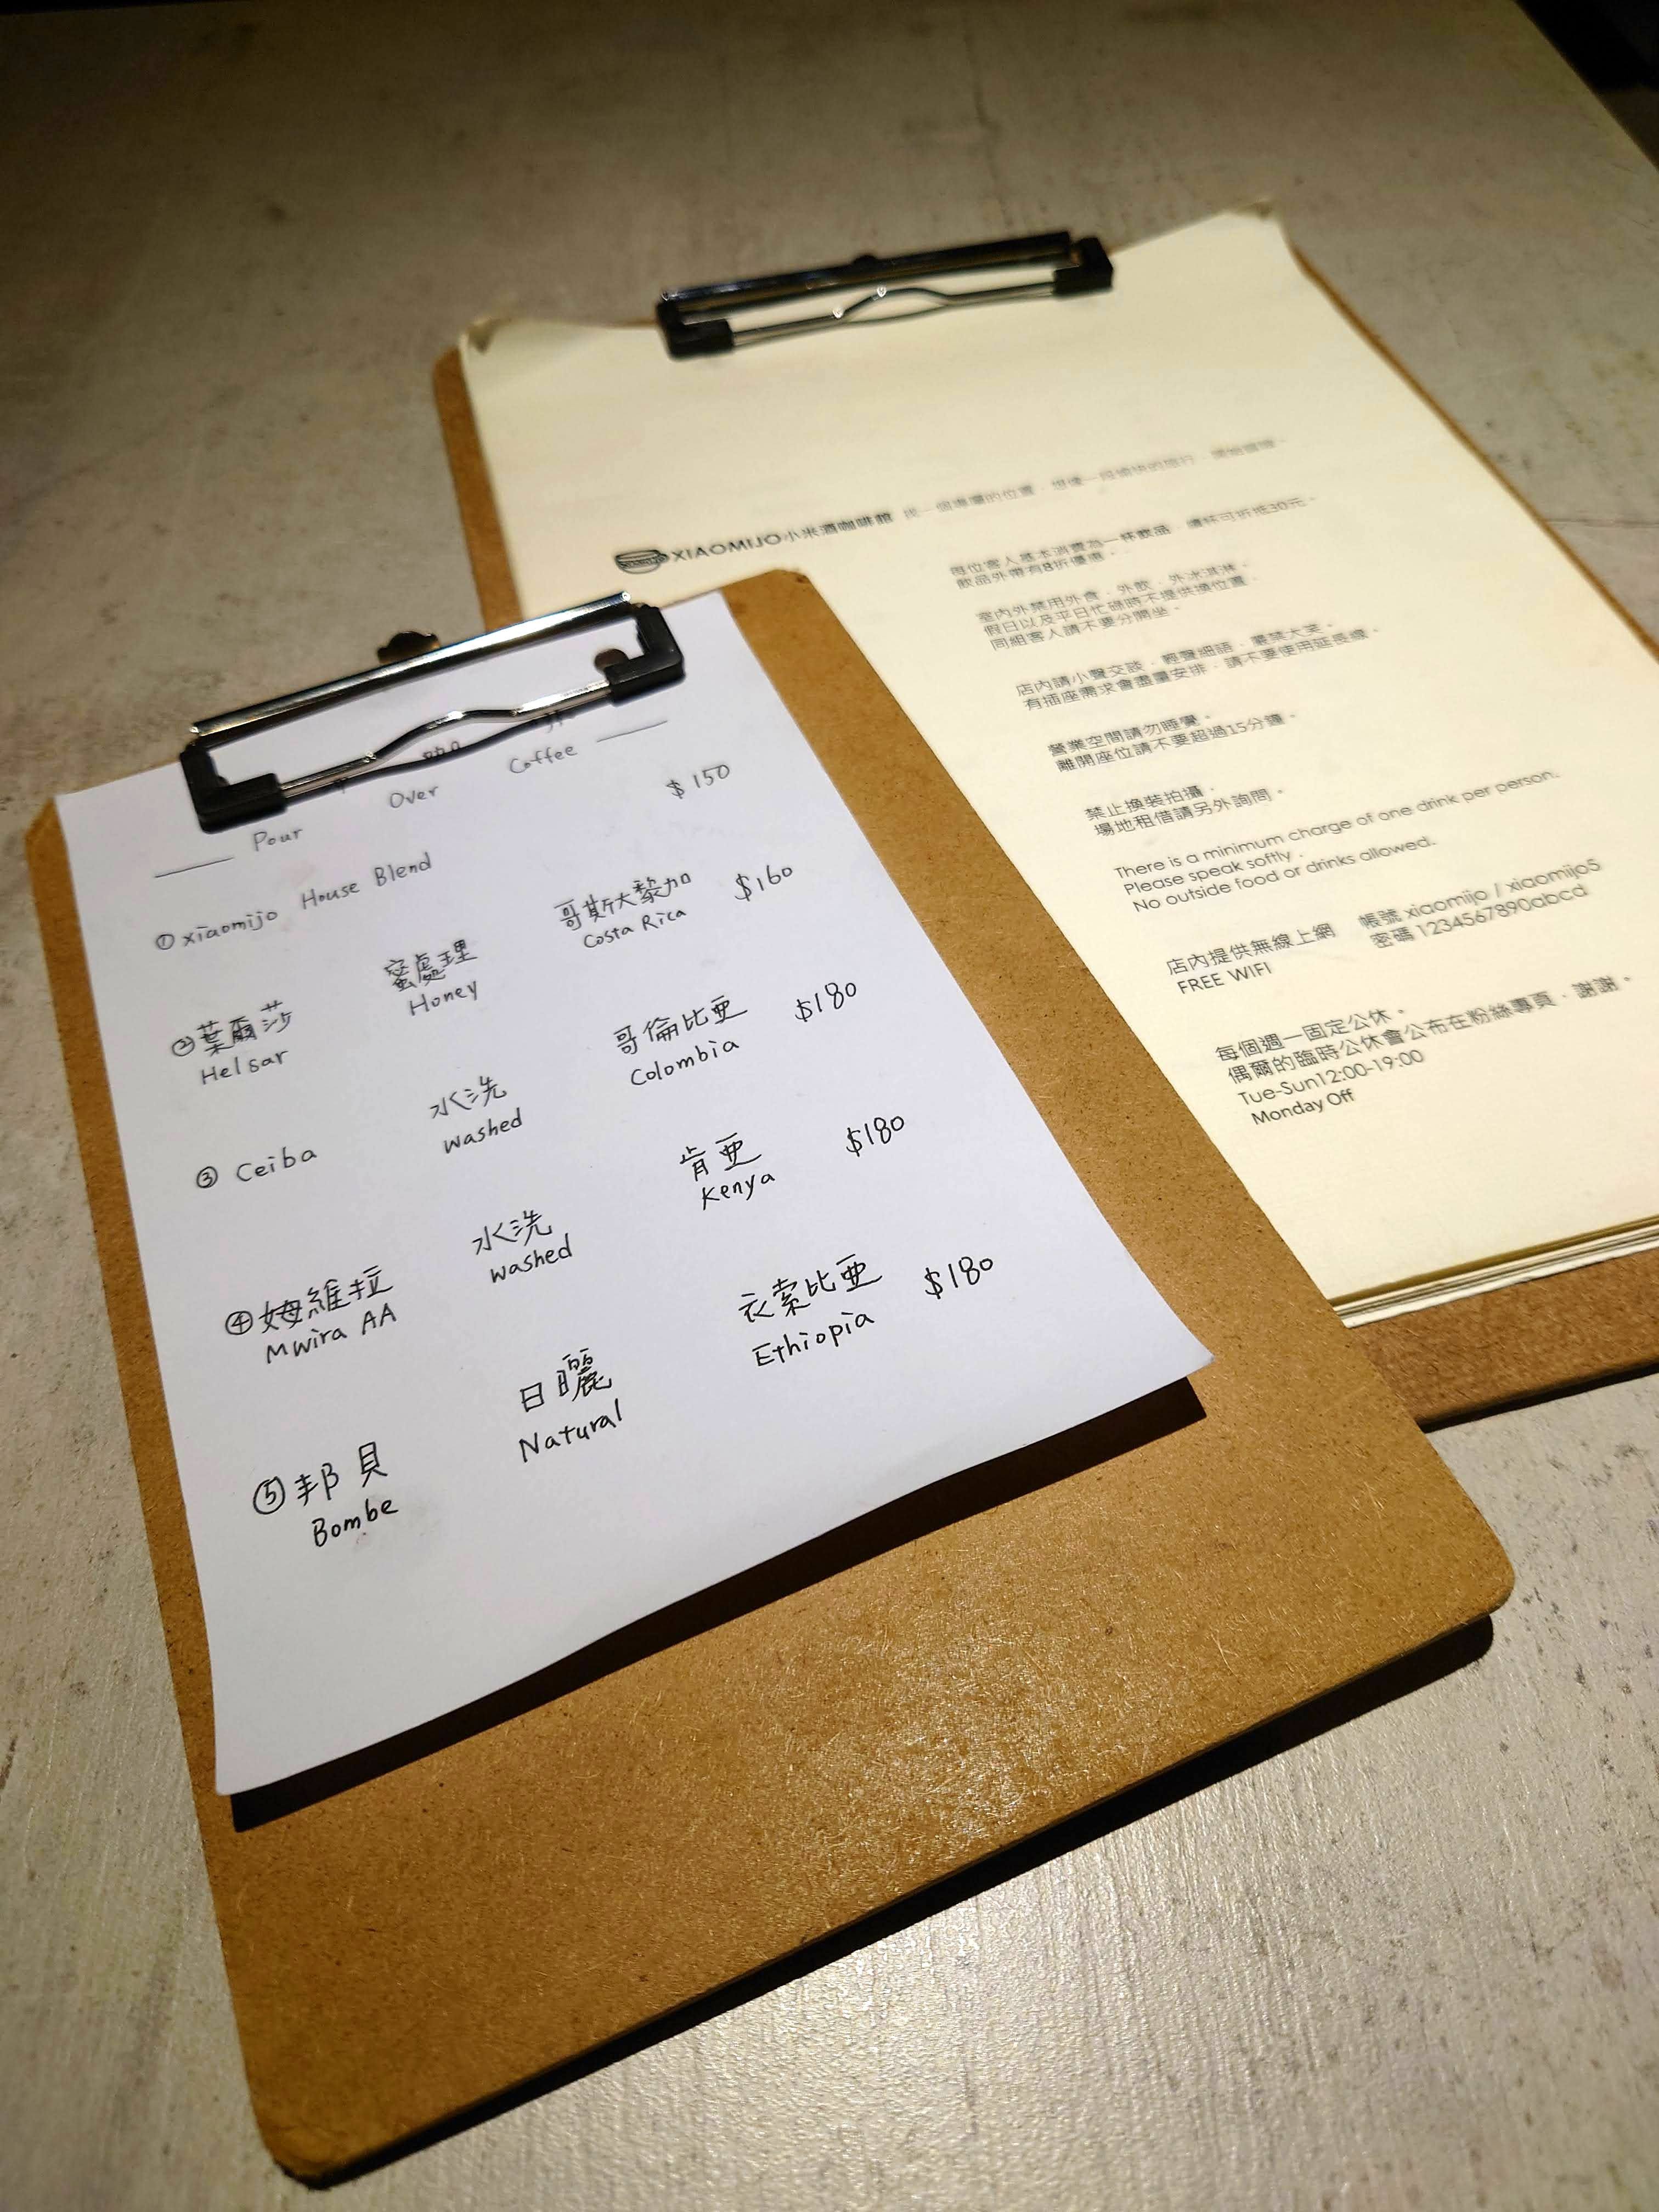 Pour Over Coffee
① xiaomijo House Blend $150
②葉爾莎 蜜處理 哥斯大黎加 $160
Helsar Honey Costa Rica
③ Ceiba 水洗 哥倫比亞 $180
washed Colombia
④姆維拉 水洗 肯亞 $180
Mwira AA washed Kenya
⑤邦貝 日曬 衣索比亞 $180
Bombe Natural Ethiopia
XIAOMIJO小米酒咖啡館 找一個專屬的位置.想像一段愉快的旅行.
每位客人基本消費為一杯飲品.續杯可折抵30元.
飲品外帶有8折優惠.
室內外禁用外食.外飲.外冰淇淋.
假日以及平日忙碌時不提供換位置.
同組客人請不要分開坐.
店內請小聲交談.輕聲細語.嚴禁大笑.
有插座需求會盡量安排.請不要使用延長線.
營業空間請勿睡覺.
離開座位請不要超過15分鐘.
禁止換裝拍攝.
場地租借請另外詢問.
There is a minimum charge of one drink per person.
Please speak softly .
No outside food or drinks allowed.
店內提供無線上網 帳號 xiaomijo / xiaomijo5
FREE WIFI 密碼 1234567890abcd
每個週一固定公休.
偶爾的臨時公休會公布在粉絲專頁.謝謝.
Tue-Sun12:00-19:00
Monday Off